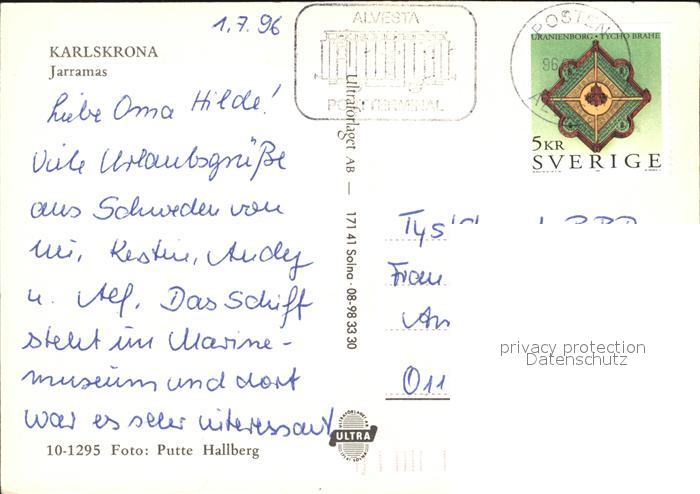 1.7.96
KARLSKRONA
Jarramas
Liebe Oma Hilde!
Viele Urlaubsgrüße
aus Schweden von
Uli, Kerstin, Andy
u. Alf. Das Schiff
steht im Marine-
museum und dort
war es sehr interessant
10-1295 Foto: Putte Hallberg
Ultraförlaget AB — 171 41 Solna · 08-98 33 30
ULTRA
ALVESTA
POSTTERMINAL
POSTEN
96
URANIENBORG · TYCHO BRAHE
5 KR
SVERIGE
Frau
O11
privacy protection
Datenschutz